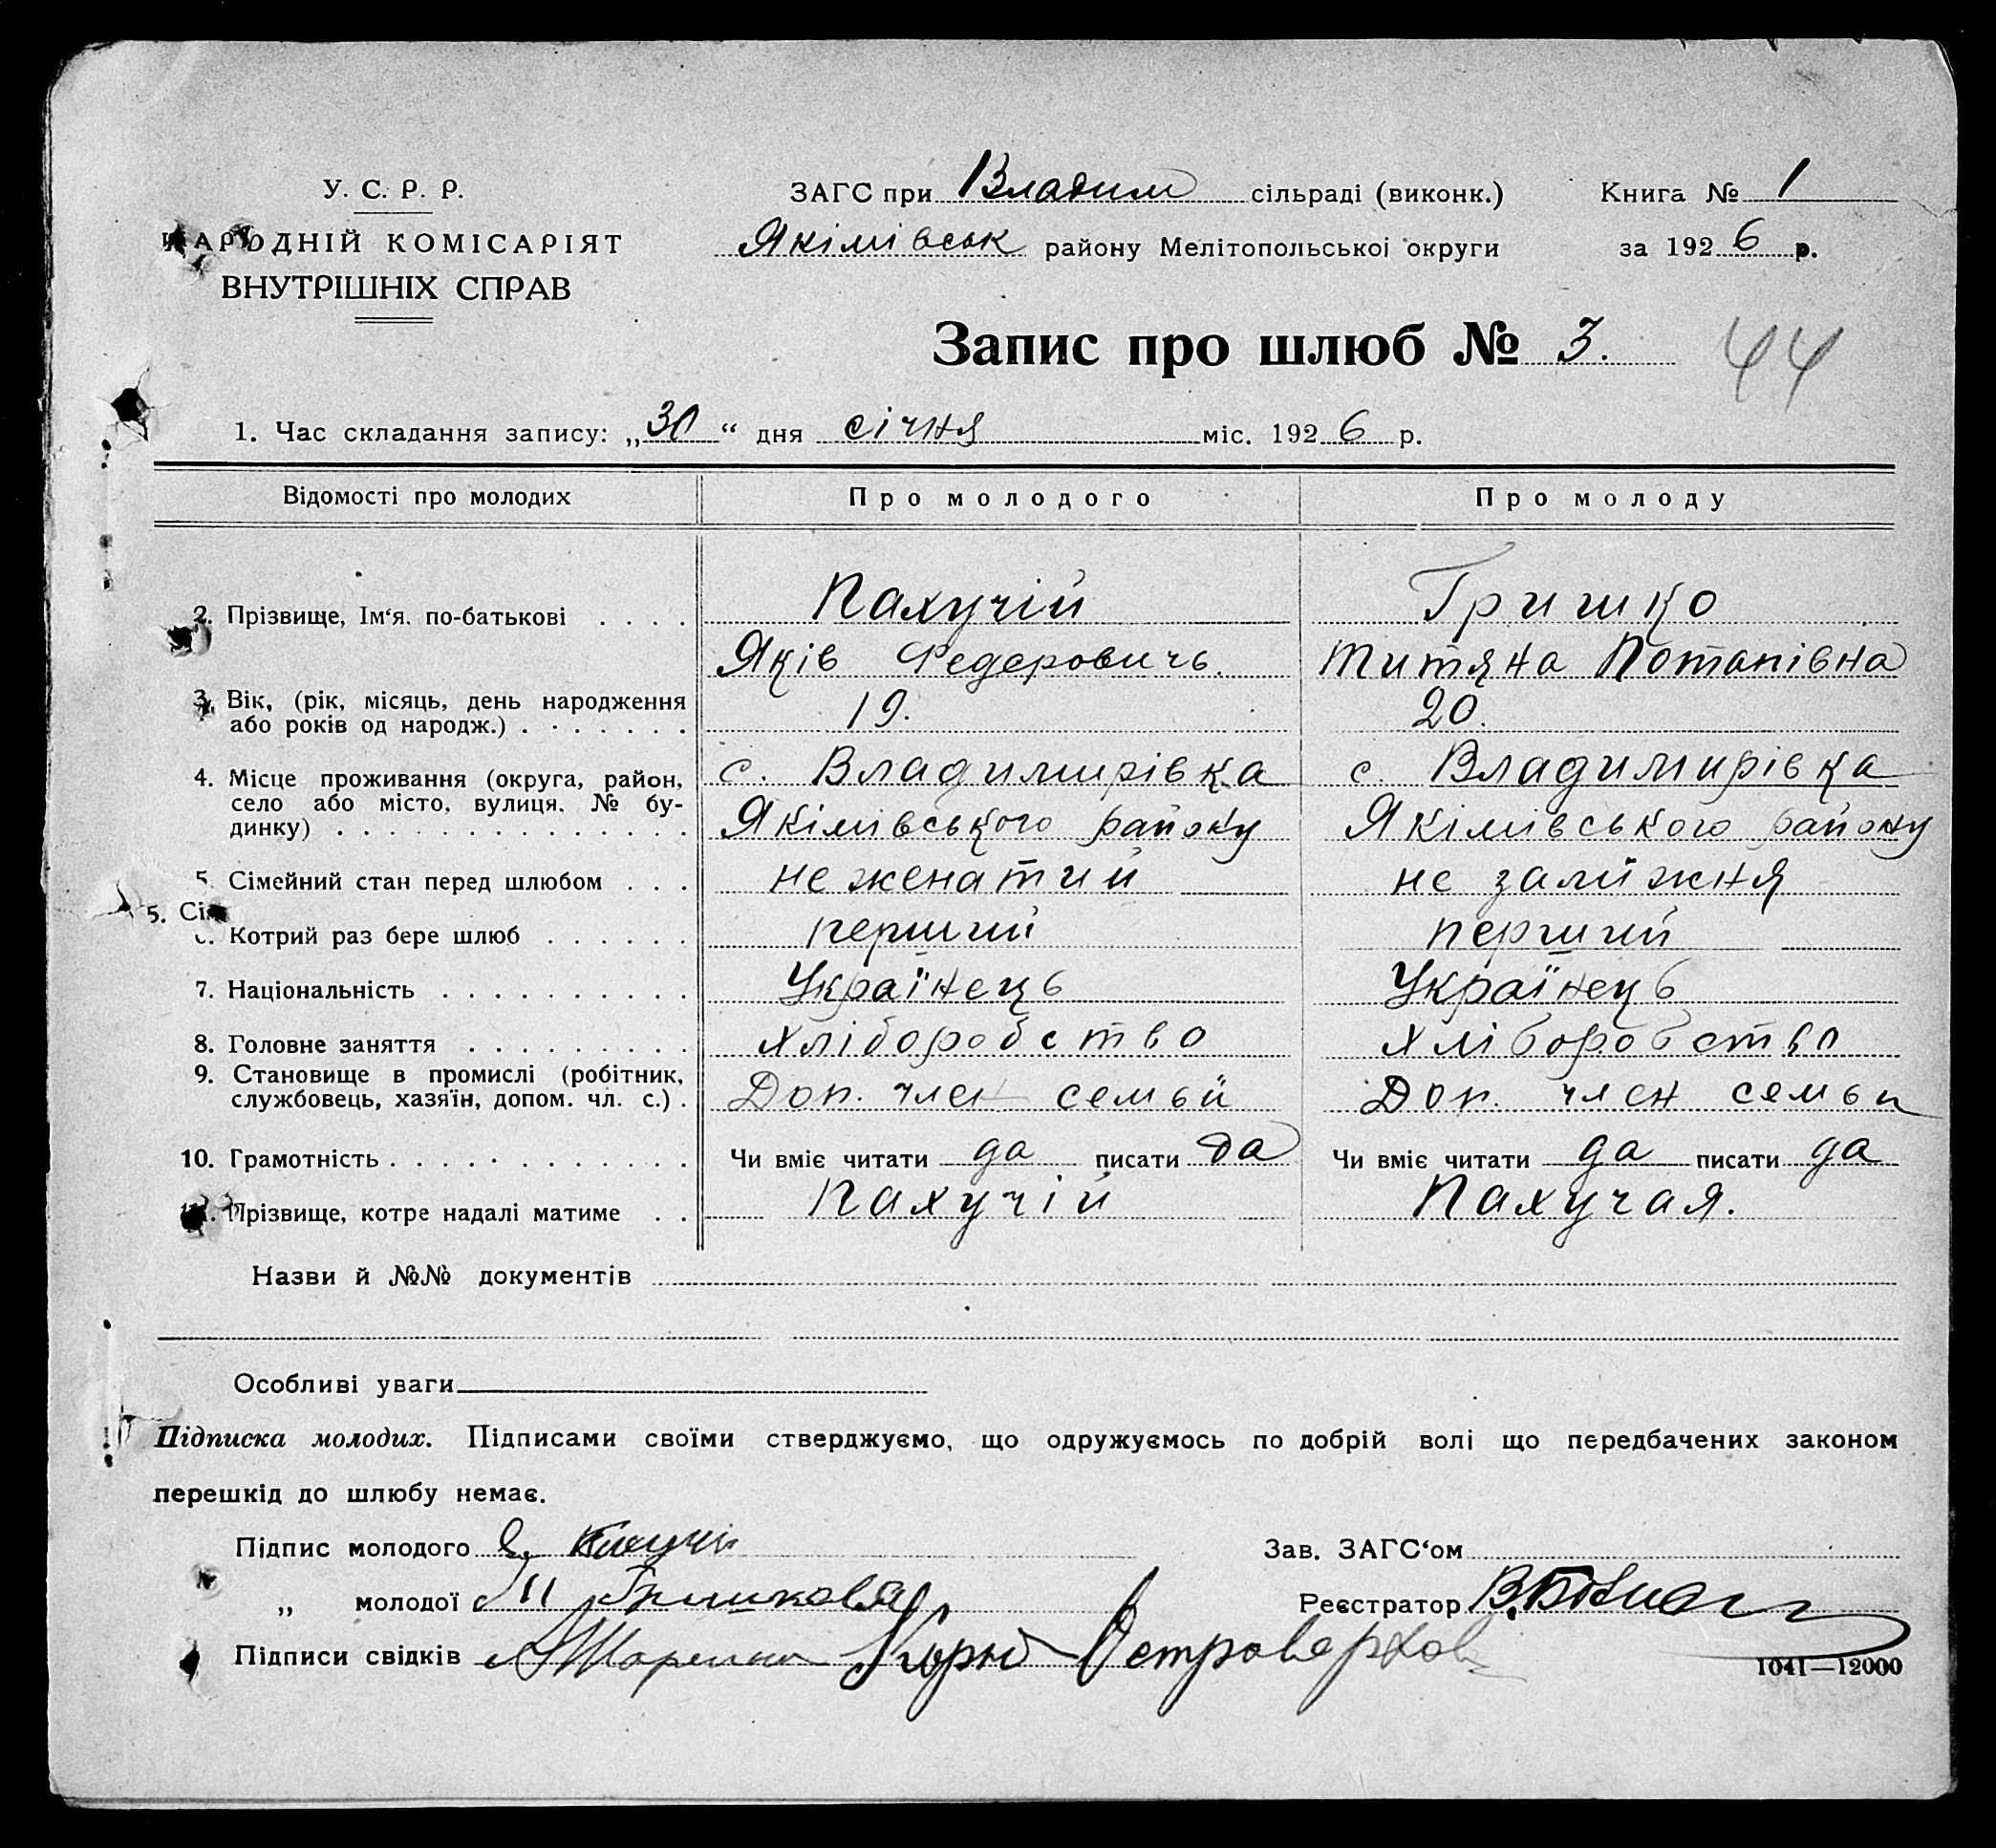 У. С. Р. Р.
НАРОДНІЙ КОМІСАРІЯТ
ВНУТРІШНІХ СПРАВ
ЗАГС при Владим сільраді (виконк.)
Якімівськ району Мелітопольської округи
Книга № 1
за 1926 р.
Запис про шлюб № 3.
44
1. Час складання запису: „30“ дня січня міс. 1926 р.
Відомості про молодих Про молодого Про молоду
2. Прізвище, Ім‘я, по-батькові . . . . Пахучій Гришко
Яків Федеровичь. Титяна Потапівна
3. Вік, (рік, місяць, день народження
або років од народж.) . . . . . . . 19. 20.
4. Місце проживання (округа, район, с. Владимирівка с. Владимирівка
село або місто, вулиця, № бу-
динку) . . . . . . . . . . . . . . Якімівського району Якімівського району
5. Сімейний стан перед шлюбом . . . не женатий не заміжня
5. Сім
6. Котрий раз бере шлюб . . . . . . перший перший
7. Національність . . . . . . . . . . Українець Українець
8. Головне заняття . . . . . . . . . хліборобство хліборобство
9. Становище в промислі (робітник,
службовець, хазяїн, допом. чл. с.) . Доп. член семьи Доп. член семьи
10. Грамотність . . . . . . . . . . . . Чи вміє читати да писати да Чи вміє читати да писати да
11. Прізвище, котре надалі матиме . . Пахучій Пахучая.
Назви й №№ документів
Особливі уваги
Підписка молодих. Підписами своїми стверджуємо, що одружуємось по добрій волі що передбачених законом
перешкід до шлюбу немає.
Підпис молодого
Зав. ЗАГС‘ом
„ молодої Гришковя
Реєстратор
Підписи свідків Островерхов
1041—12000